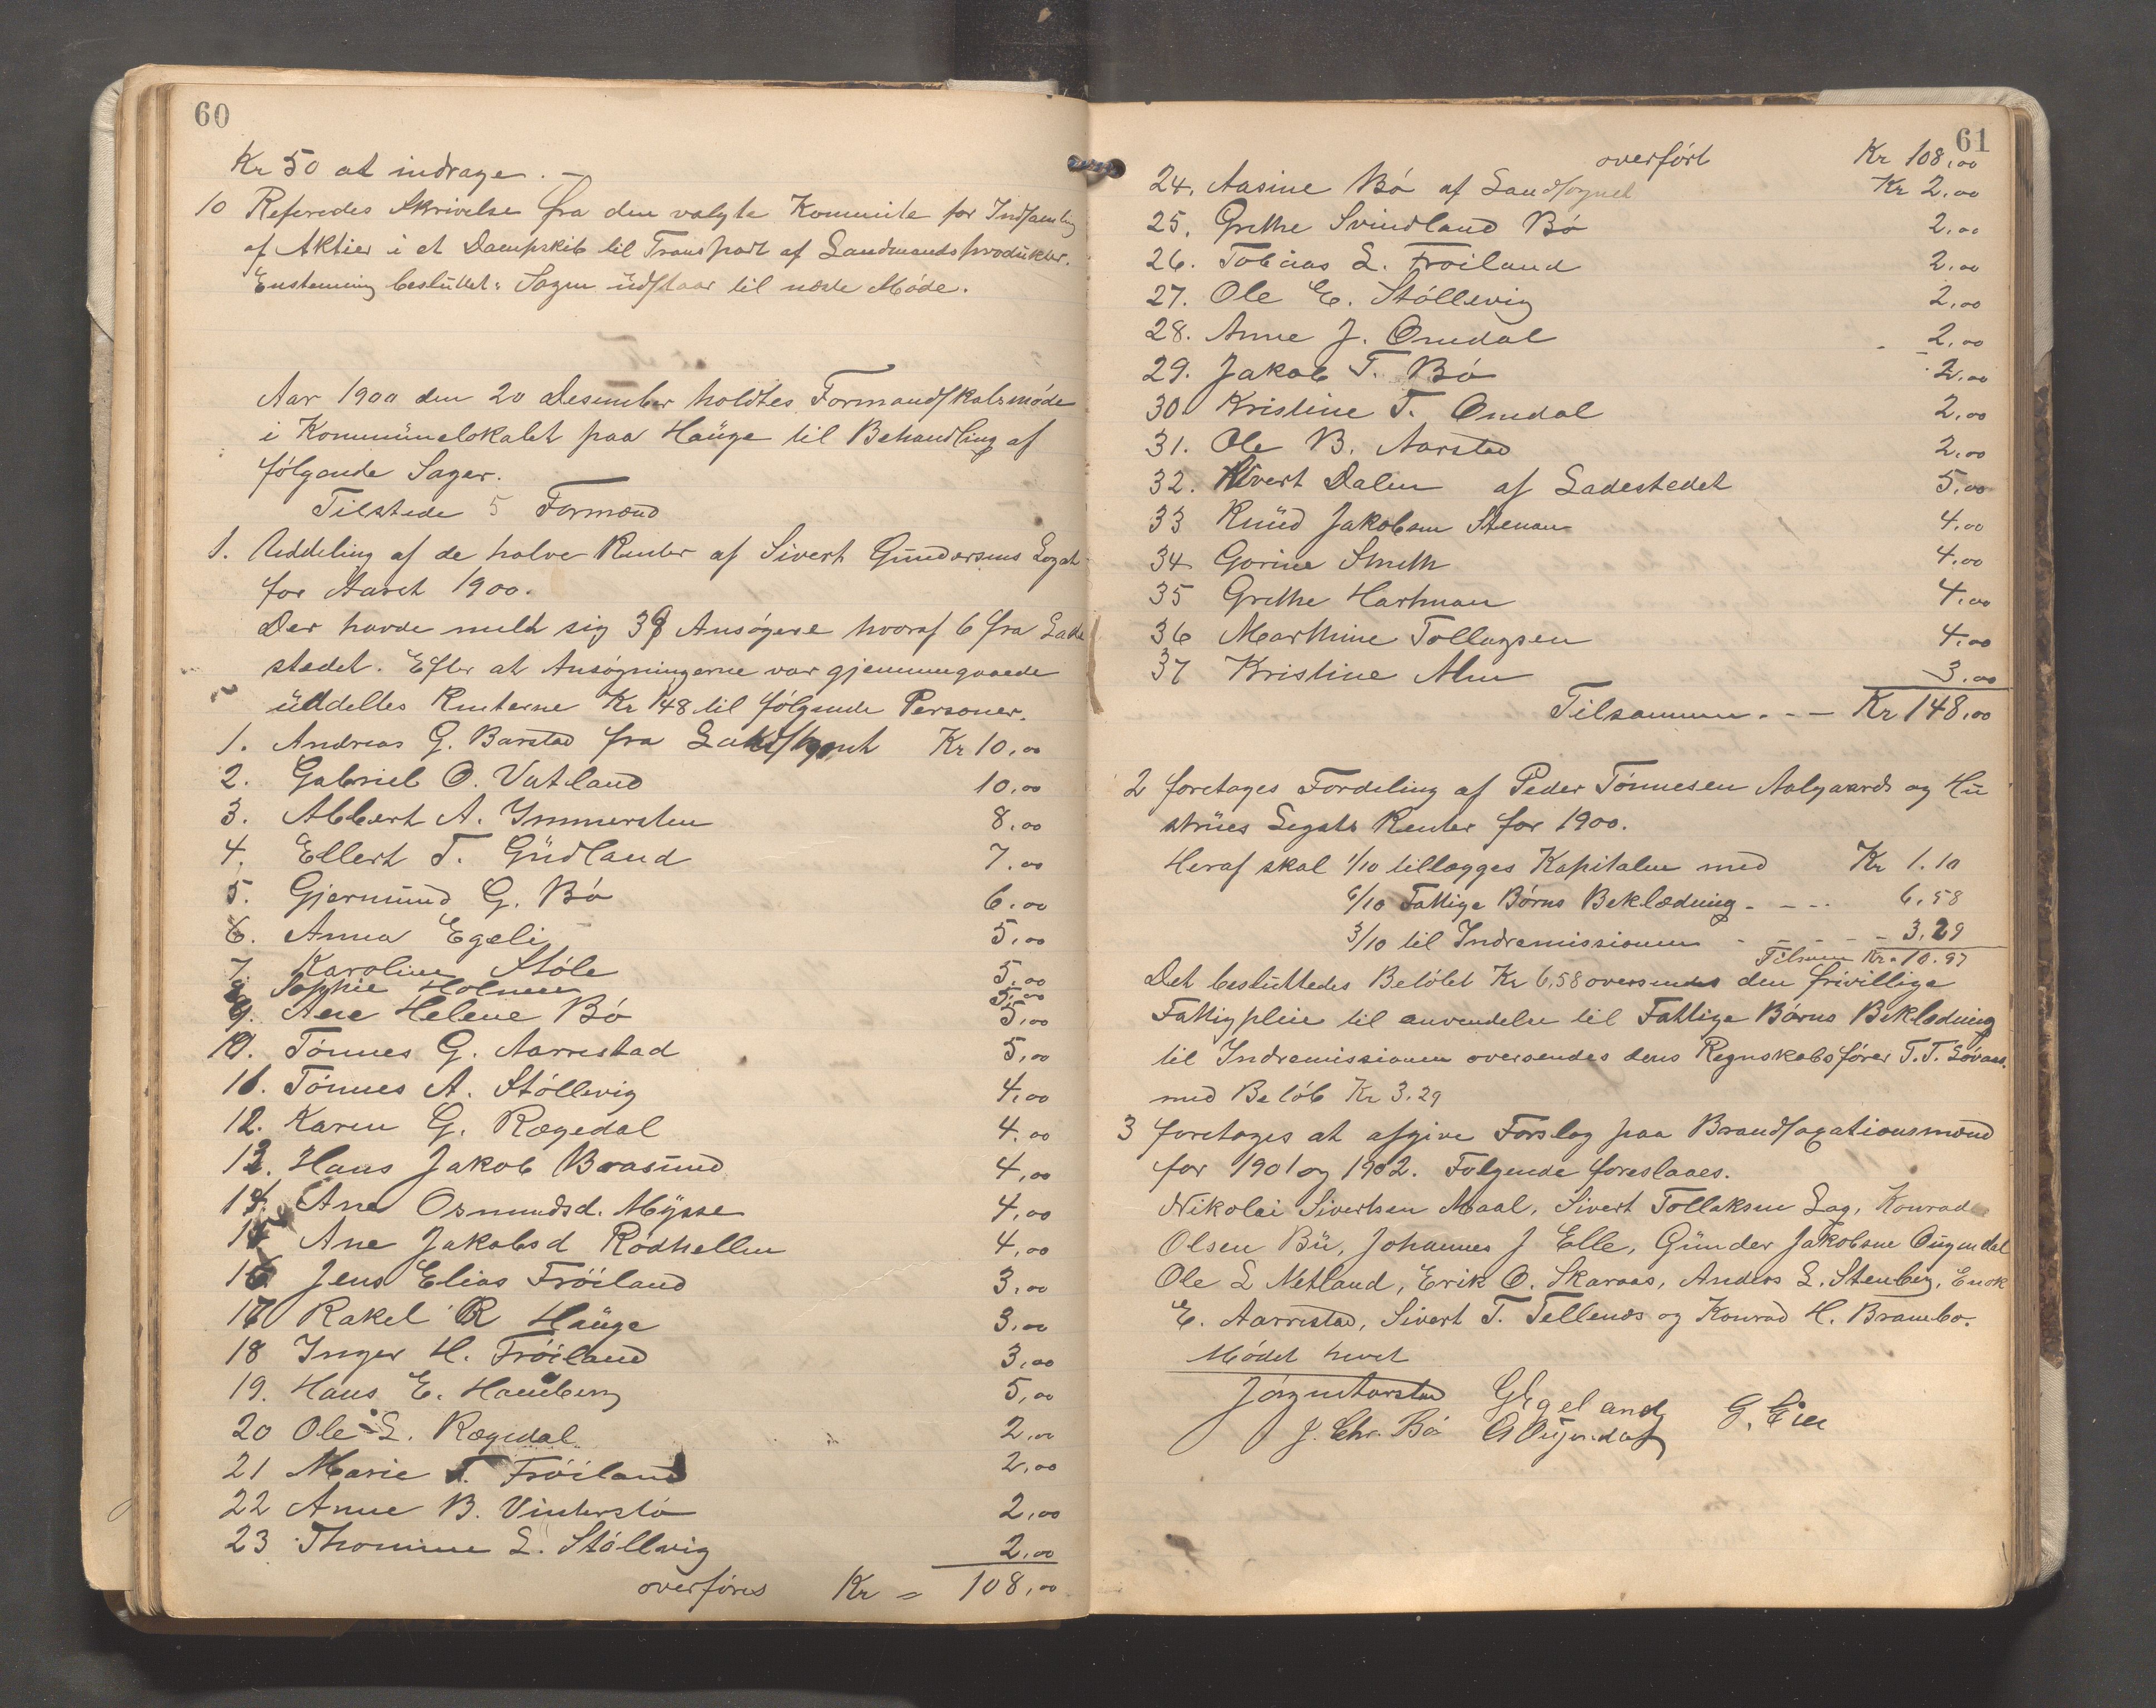 60
Kr 50 at indrage. –
10 Referedes Skrivelse fra den valgte Kommite for Indsamling
af Aktier i et Dampskib til Transport af Landmandsprodukter.
Enstemmig besluttet: Sagen udstaar til næste Møde.
Aar 1900 den 20 Desember holdtes Formandskabsmøde
i Kommünelokalet paa Haüge til Behandling af
følgende Sager.
Tilstede 5 Formænd
1. Uddeling af de halve Renter af Sivert Gundersens Legat
for Aaret 1900.
Der havde meldt sig 39 Ansøgere hvoraf 6 fra Lade
stedet. Efter at Ansøgningerne var gjennemgaaede
üddeltes Renterne Kr 148 til følgende Personer.
1. Andreas G. Barstad fra Landsognet Kr 10,00
2. Gabriel O. Vatland 10,00
3. Albert A. Immersten 8,00
4. Ellert T. Güdland 7.00
5. Gjermünd G. Bø 6.00
6. Anna Egeli 5,00
7. Karoline Støle 5,00
8. Sophie Holmen 5,00
9. Ane Helene Bø 5,00
10. Tønnes G. Aarrestad 5,00
11. Tønnes A. Støllevig 4,00
12. Karen G. Rægedal 4.00
13. Hans Jakob Braasünd 4,00
14. Ane Osmundsd. Mysse 4,00
15 Ane Jakobsd Rødhellen 4,00
16 Jens Elias Frøiland 3,00
17 Rakel R Haüge 3,00
18 Inger H. Frøiland 3,00
19. Hans E. Hamberg 5,00
20 Ole L. Rægedal 2,00
21 Marie T. Frøiland 2,00
22 Anne B. Vinterstø 2,00
23 Thomine L. Støllevig 2,00
overføres Kr = 108,00
61
overført Kr 108,00
24. Aasine Bø af Landsognet Kr 2,00
25. Grethe Svindland Bø 2,00
26. Tobias L. Frøiland 2,00
27. Ole E. Støllevig 2,00
28. Anne J. Omdal 2,00
29. Jakob T. Bø 2,00
30. Kristine T. Omdal 2,00
31. Ole B. Aarstad 2,00
32. Sivert Dalen af Ladestedet 5,00
33 Knüd Jakobsen Stenan 4.00
34 Gorine Smith 4.00
35 Grethe Hartman 4,00
36 Marthine Tollagsen 4,00
37 Kristine Alm 3.00
Tilsammen - - - Kr 148,00
2 foretages Fordeling af Peder Tønnesen Aalgaards og Hü
strües Legats Renter for 1900.
Heraf skal 1/10 tillægges Kapitalen med Kr 1.10
6/10 Fattige Børns Beklædning - - - 6,58
3/10 til Indremissionen - - - 3,29
Tilsam Kr. 10.97
Det besluttedes Beløbet Kr 6,58 oversendes den frivillige
Fattigpleie til anvendelse til Fattige Børns Beklædning
til Indremissionen oversendes dens Regnskabsfører T. T. Løvaas.
med Beløb Kr 3.29
3 foretages at afgive Forslag paa Brandtaxationsmænd
for 1901 og 1902. Følgende foreslaaes.
Nikolai Sivertsen Maal, Sivert Tollaksen Log, Konrad
Olsen Bü, Johannes J Elle, Günder Jakobsen Ougendal
Ole L Netland, Erik O. Skaraas, Anders L. Stenberg, Enok
E. Aarrestad, Sivert T. Tellenes og Konrad H. Brambo.
Mødet hevet
Jørgen Aarstad GEgeland G. Eie
J. Chr. Bø A Ougendal